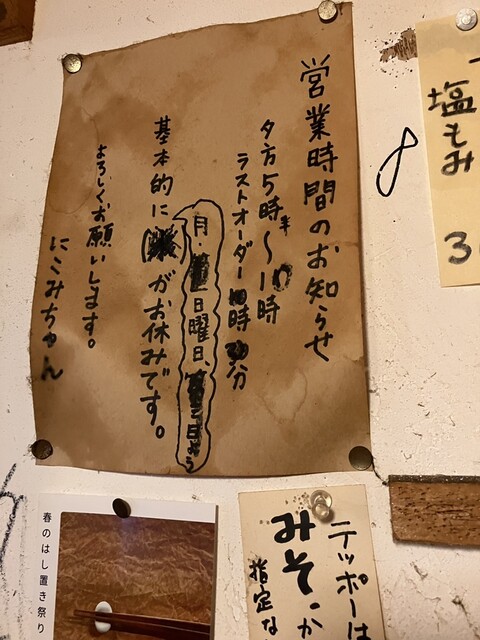 営業時間のお知らせ
夕方5時半〜10時
ラストオーダー 時 分
基本的に がお休みです。
月・ 日曜日、
よろしくお願いします。
にこみちゃん
塩もみ
3
春のはし置き祭り
テッポーは
みそ・か
指定な